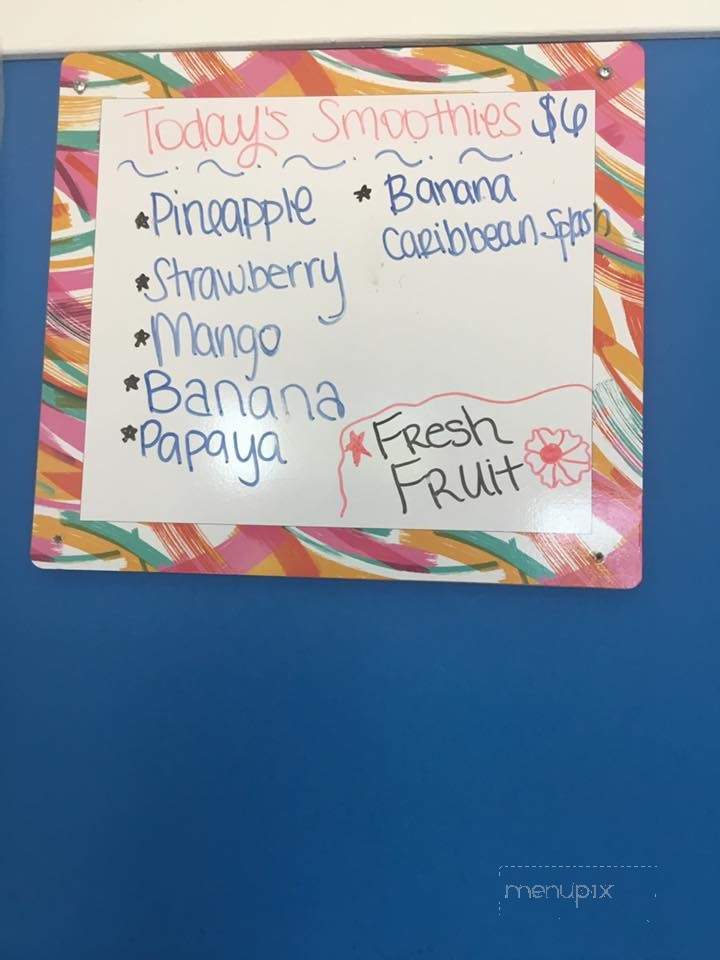 Today's Smoothies $6
Pineapple
Strawberry
Mango
Banana
Papaya
Banana
Caribbean Splash
Fresh
Fruit
menupix